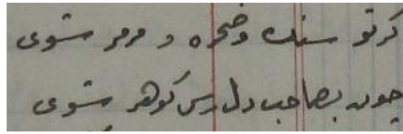 کرتو سنك وضخره و مرمر شوی
چون بصاحب دل رسی کوهر شوی